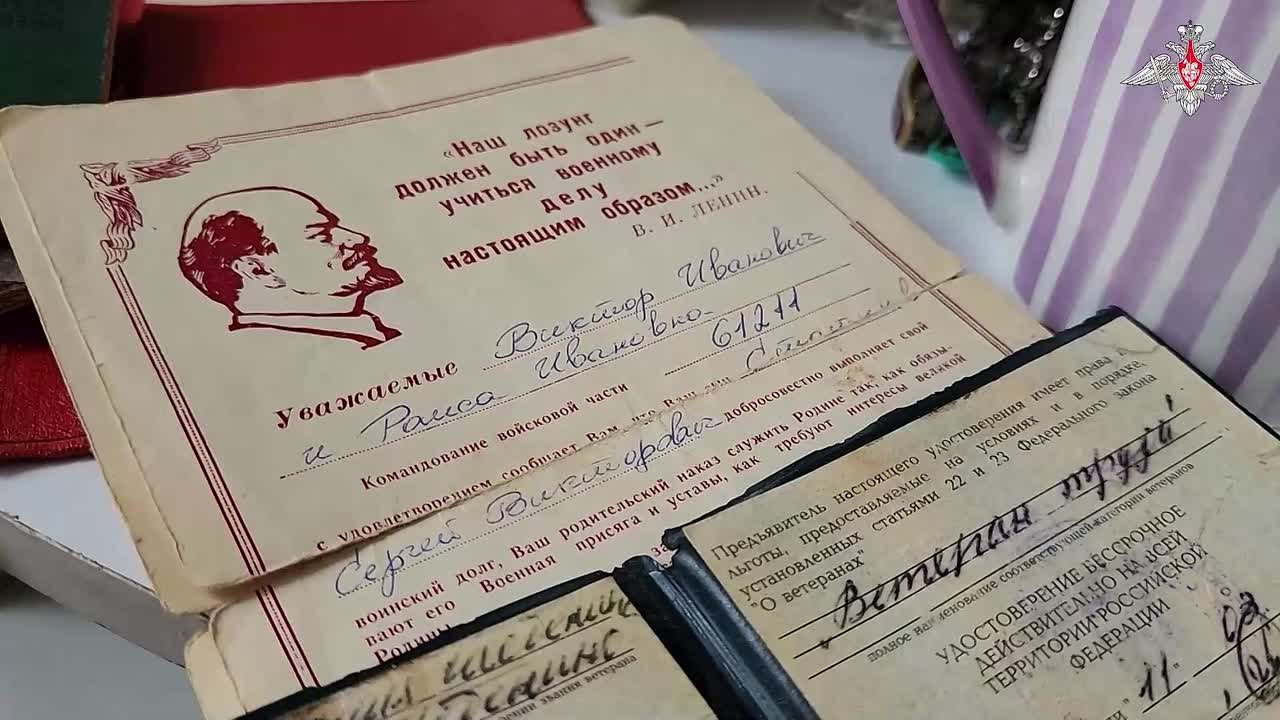 «Наш лозунг
должен быть один —
учиться военному
делу
настоящим образом...»
В. И. ЛЕНИН.
Уважаемые Виктор Иванович
и Раиса Ивановна
Командование войсковой части 61211
с удовлетворением сообщает Вам, что Ваш сын
Сергей Викторович добросовестно выполняет свой
воинский долг, Ваш родительский наказ служить Родине так, как обязы-
вают его Военная присяга и уставы, как требуют интересы великой
Родины
Предъявитель настоящего удостоверения имеет права и
льготы, предоставляемые на условиях и в порядке,
установленных статьями 22 и 23 Федерального закона
"О ветеранах"
Ветеран
полное наименование соответствующей категории ветеранов
УДОСТОВЕРЕНИЕ БЕССРОЧНОЕ
ДЕЙСТВИТЕЛЬНО НА ВСЕЙ
ТЕРРИТОРИИ РОССИЙСКОЙ
ФЕДЕРАЦИИ
"11"
звания ветерана